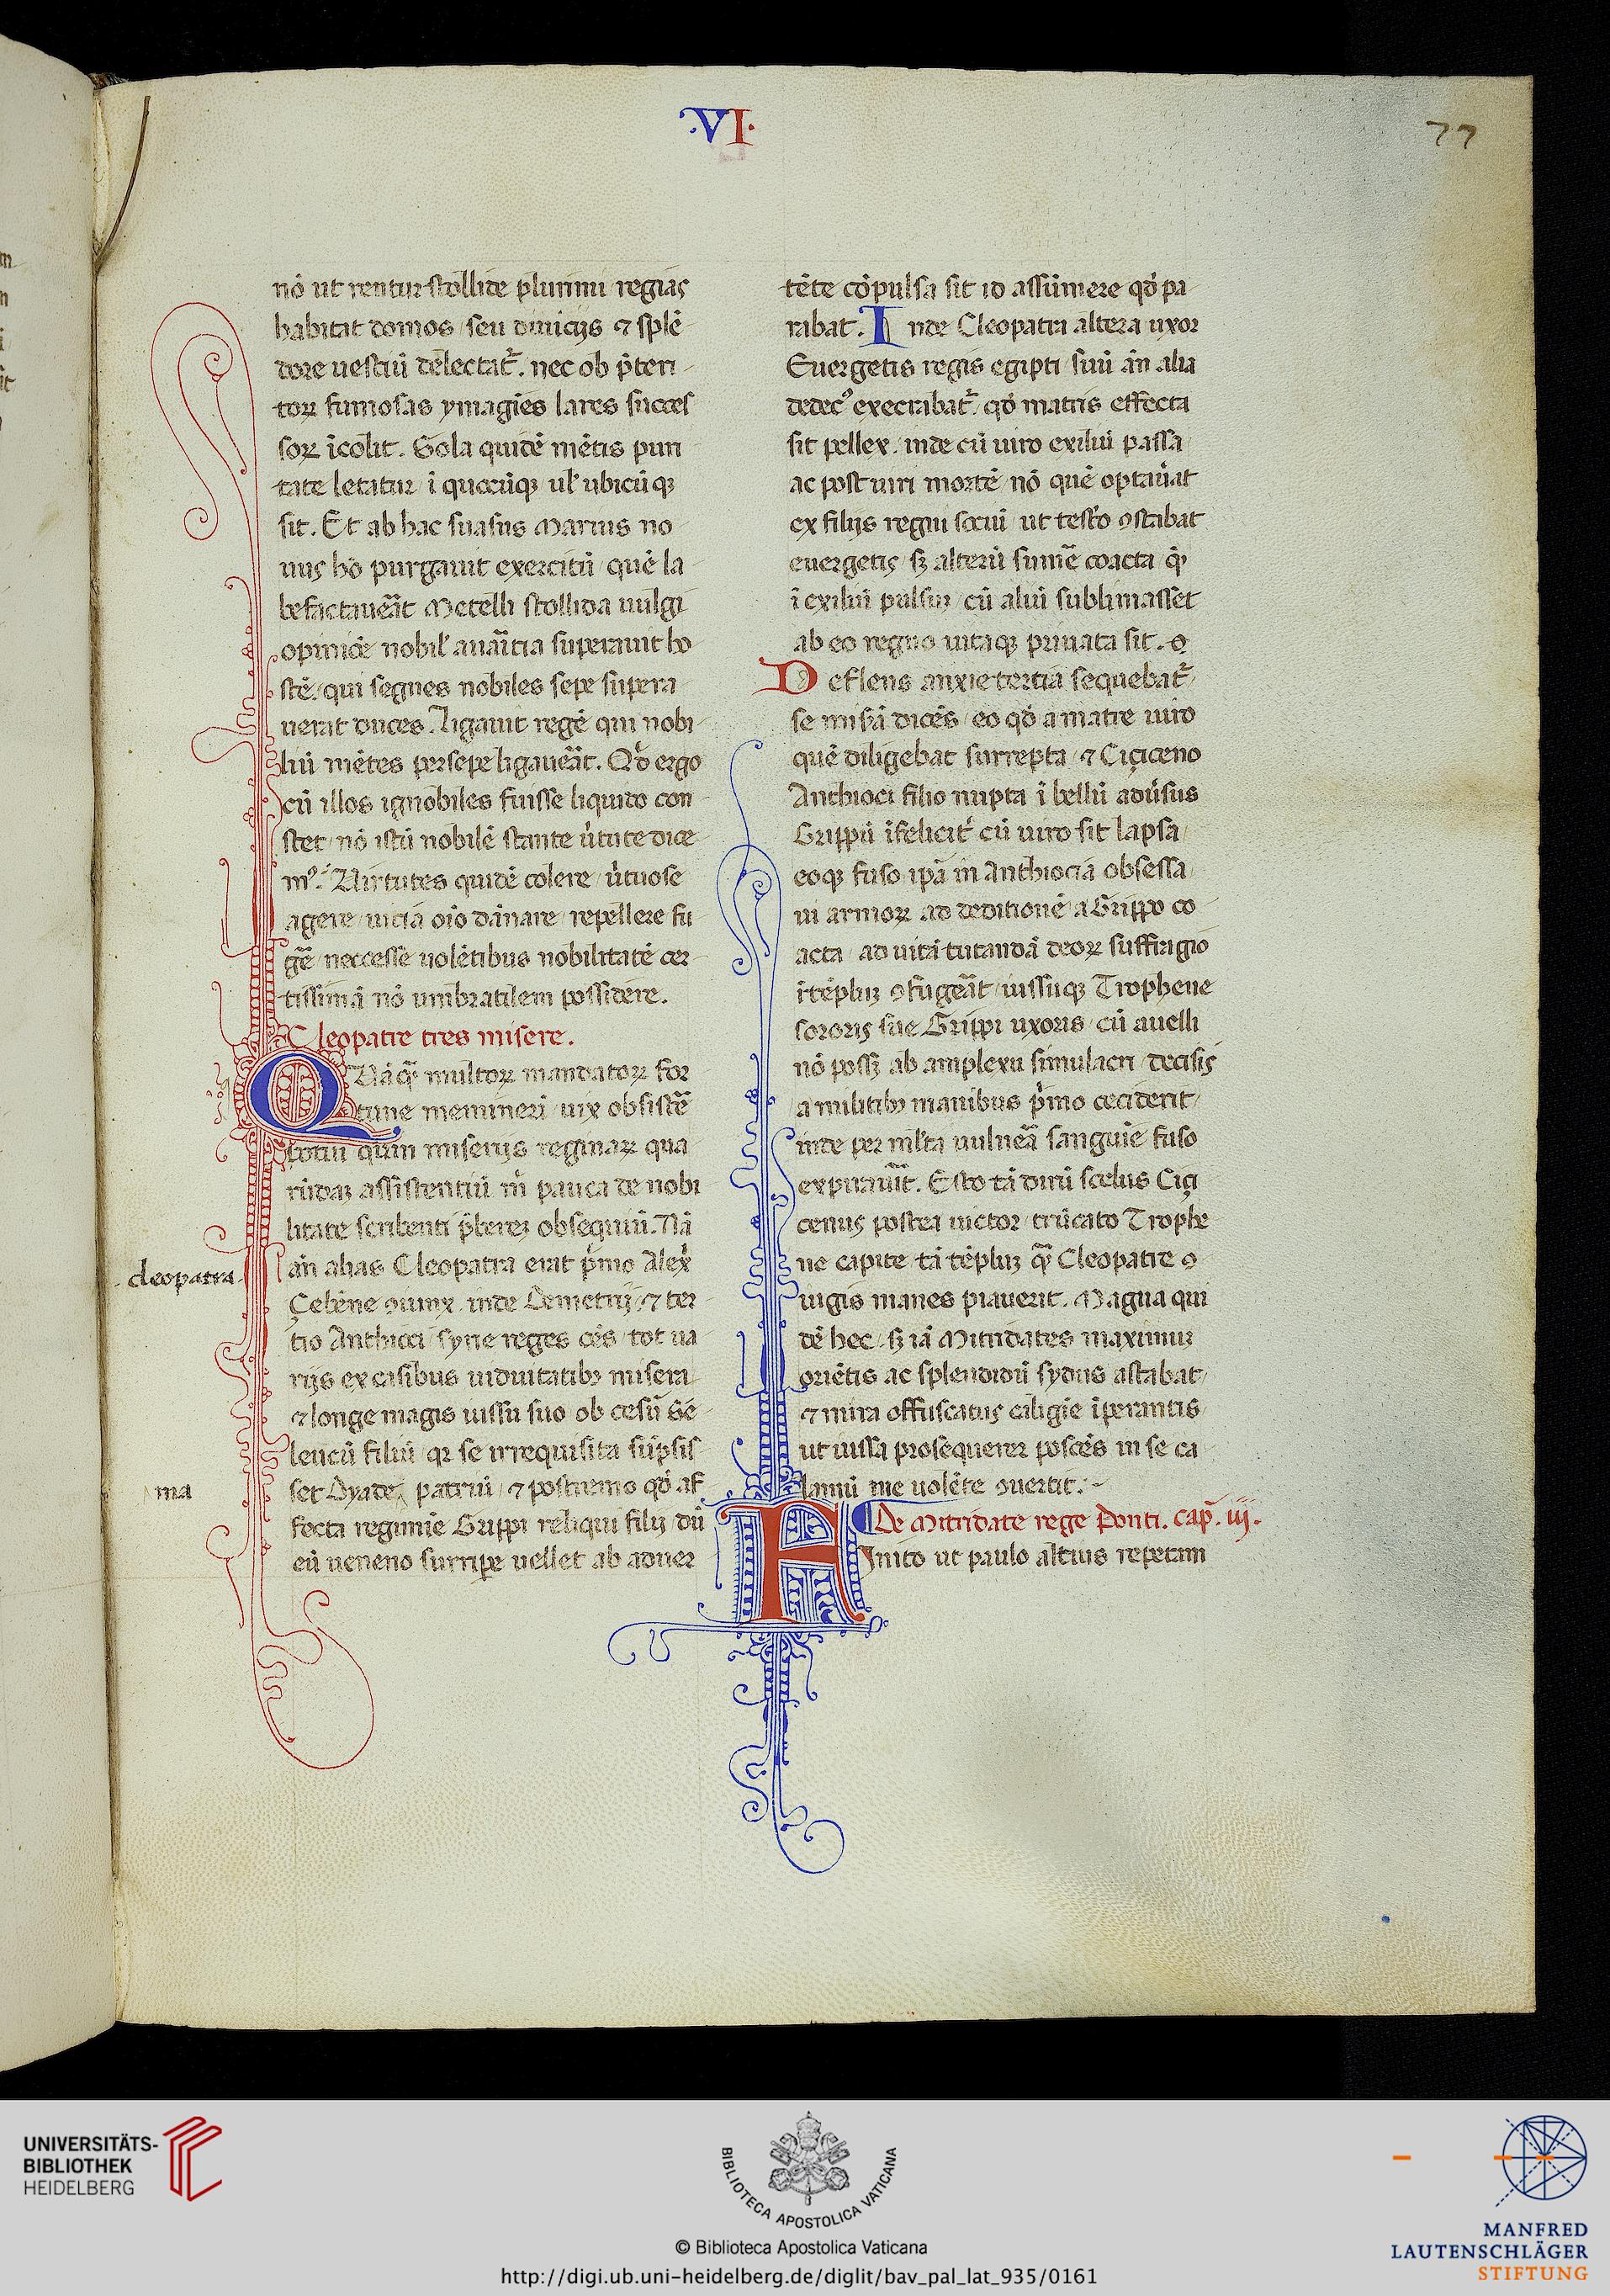 ·VI·
77
nō ut rentur stollide plurimi regias
habitat domos seu diuicijs ⁊ splē
dore uestiū delectat᷑. nec ob p̄teri
toꝝ fumosas ymagīes lares succes
soꝝ īcolit. Sola quidē mētis puri
tate letatur i quocūqꝫ ul' ubicūqꝫ
sit. Et ab hac suasus Marius no
uus hō purgauit exercitū quē la
befactaueāt Metelli stollida uulgi
opinióe nobil' auaītia superauit ho
stē. qui segnes nobiles sepe supera
uerat duces. ligauit regē qui nobi
liū mētes persepe ligaueāt. Qđ ergo
cū illos ignobiles fuisse liquido con
stet nō istū nobilē stante u̇tute dice
mꝰ. Uirtutes quidē colere u̇tuose
agere uicia oīo dānare repellere fu
gē neccesse uolētibus nobilitatē cer
tissimā nō umbratilem possidere.
Cleopatre tres misere.
QUāq̄ multoꝝ mandatoꝝ for
tune meminerī uix obsistē
potui quin miserijs reginaꝝ qua
rūdaꝫ assistentiū m̄ pauca de nobi
litate scribenti p̄berez obsequiū. Nā
an̄ alias Cleopatra erat p̄mo Alex̄
Çebēne ꝯiunx. inde Demetrij ⁊ ter
tio Anthioci syrie reges cēs tot ua
rijs ex casibus uiduitatibꝫ misera
⁊ longe magis uissu suo ob cesū Sē
leucū filiū qꝛ se irrequisita sūpsis
set Dyadeꝫ patriū ⁊ postremo qđ af
fecta regimīe Grippi reliqui filij dū
eū ueneno surripe uellet ab aduer
cleopatra
ma
tēte cōpulsa sit id assūmere qđ pa
rabat. Inde Cleopatra altera uxor
Euergetis regis egipti suū ān alia
dedecꝰ execrabat᷑. qđ matris effecta
sit pellex. inde cū uiro exiliū passa
ac post uiri mortē nō quē optau̇at
ex filijs regni sociū ut testo ꝯstabat
euergetis sꝫ alterū sumē coacta q̇
ī exiliū pulsuꝫ cū aluī sublimasset
ab eo regno uitaqꝫ priuata sit. ꝯ
Deflens anxie tertia sequebat᷑
se mis̄ā dicēs eo qđ a matre uiro
quē diligebat surrepta ⁊ Ciçiceno
Anthioci filio nupta ī bellū adu̇sus
Grippū īfelicit᷑ cū uiro sit lapsa
eoqꝫ fuso ip̄a in Anthiociā obsessa
ui armoꝝ ad deditionē a Grippo co
acta ad uitā tutandā deoꝝ suffragio
ī tēpluꝫ ꝯfugeāt iussuqꝫ Trophene
sororis sue Grippi uxoris cū auelli
nō possꝫ ab amplexu simulacri decisis
a militibꝫ manibus p̄mo ceciderit
inde per ml'ta uulneā sanguīe fuso
expirauīt. Esto tā dirū scelus Ciçi
cenus postea uictor trūcato Trophe
ne capite tā tēpluꝫ q̄ Cleopatre ꝯ
iugis manes piauerit. Magna qui
dē hec. sꝫ iā Mitridates maximuꝫ
oriētis ac splendidū sydus astabat
⁊ mira offuscatus caligīe īperantis
ut iussa prosequerer poscēs in se ca
lamū me uolēte ꝯuertit.
De Mitridate rege Ponti. cap̄. iij.
AInito ut paulo altius repetam
UNIVERSITÄTS-
BIBLIOTHEK
HEIDELBERG
BIBLIOTECA APOSTOLICA VATICANA
© Biblioteca Apostolica Vaticana
http://digi.ub.uni-heidelberg.de/diglit/bav_pal_lat_935/0161
MANFRED
LAUTENSCHLÄGER
STIFTUNG